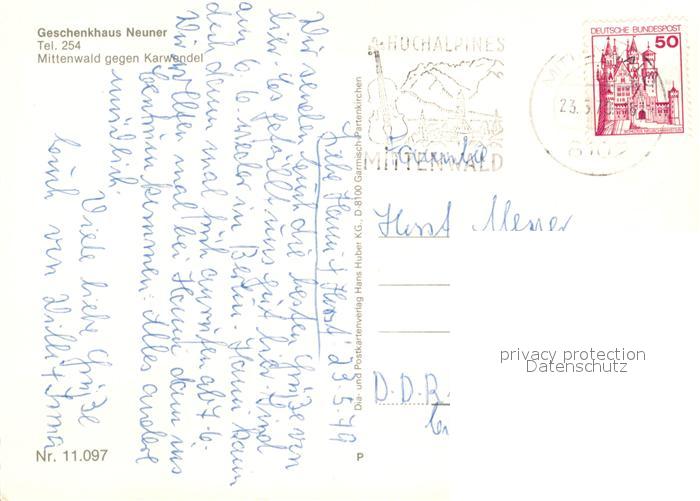 Geschenkhaus Neuner
Tel. 254
Mittenwald gegen Karwendel
Liebe Hanni + Horst! 23.5.79
Wir senden Euch die besten Grüße von
hier. Es gefällt uns gut hier. Sind
am 6.6. wieder in Berlin. Hanni kann
dich dann mal früh anrufen ab 7.6.
Wir wollten mal bei Hanni dann ins
Centrum kommen. Alles andere
mündlich.
Viele liebe Grüße
Euch von Willi + Irma
Nr. 11.097
Dia- und Postkartenverlag Hans Huber KG., D-8100 Garmisch-Partenkirchen
P
HOCHALPINES
MITTENWALD
DEUTSCHE BUNDESPOST
50
23.5.
8102
Horst
D.D.R.
privacy protection
Datenschutz